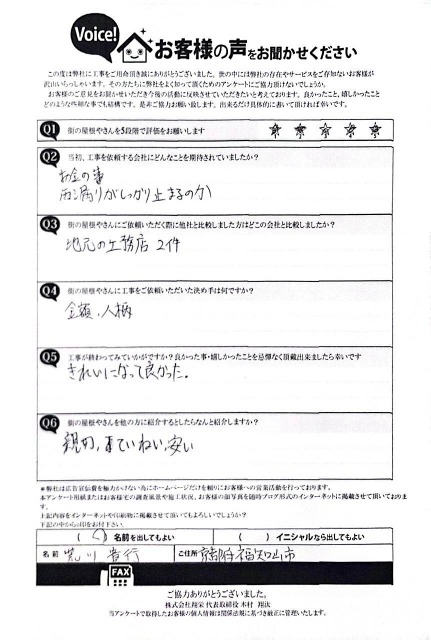 Voice!
お客様の声をお聞かせください
この度は弊社に工事をご用命頂き誠にありがとうございました。世の中には弊社の存在やサービスをご存知ないお客様が
沢山いらっしゃいます。その方たちに弊社をよく知って頂くためのアンケートにご協力頂けないでしょうか。
お客様のご意見をお聞かせいただき今後の活動に反映させていただきたいと考えております。良かったこと、嬉しかったこと
どのような些細な事でも結構です。是非ご協力お願い致します。出来るだけ具体的に書いて頂ければ幸いです。
Q1 街の屋根やさんを5段階で評価をお願いします ☆ ☆ ☆ ☆ ☆
Q2 当初、工事を依頼する会社にどんなことを期待されていましたか?
お金の事
雨漏りがしっかり止まるのか
Q3 街の屋根やさんにご依頼いただく際に他社と比較しました方はどこの会社と比較しましたか?
地元の工務店 2件
Q4 街の屋根やさんに工事をご依頼いただいた決め手は何ですか?
金額、人柄
Q5 工事が終わってみていかがですか?良かった事・嬉しかったことを忌憚なく頂戴出来ましたら幸いです
きれいになって良かった。
Q6 街の屋根やさんを他の方に紹介するとしたらなんと紹介しますか?
親切、ていねい、安い
*弊社は広告宣伝費を極力かけない為にホームページだけを頼りにお客様への営業活動を行っております。
本アンケート用紙またはお客様宅の調査風景や施工状況、お客様の顔写真を随時ブログ形式のインターネットに掲載させて頂いておりま
す。
上記内容をインターネットや印刷物に掲載させて頂いてもよろしいでしょうか?
下記の中から○印をお付下さい。
( ○ ) 名前を出してもよい ( ) イニシャルなら出してもよい
名前 荒川 貴行 ご住所 京都府福知山市
FAX
ご協力ありがとうございました。
株式会社翔栄 代表取締役 木村 翔汰
当アンケートで取得したお客様の個人情報は関係法規に基づき厳正に管理いたします。